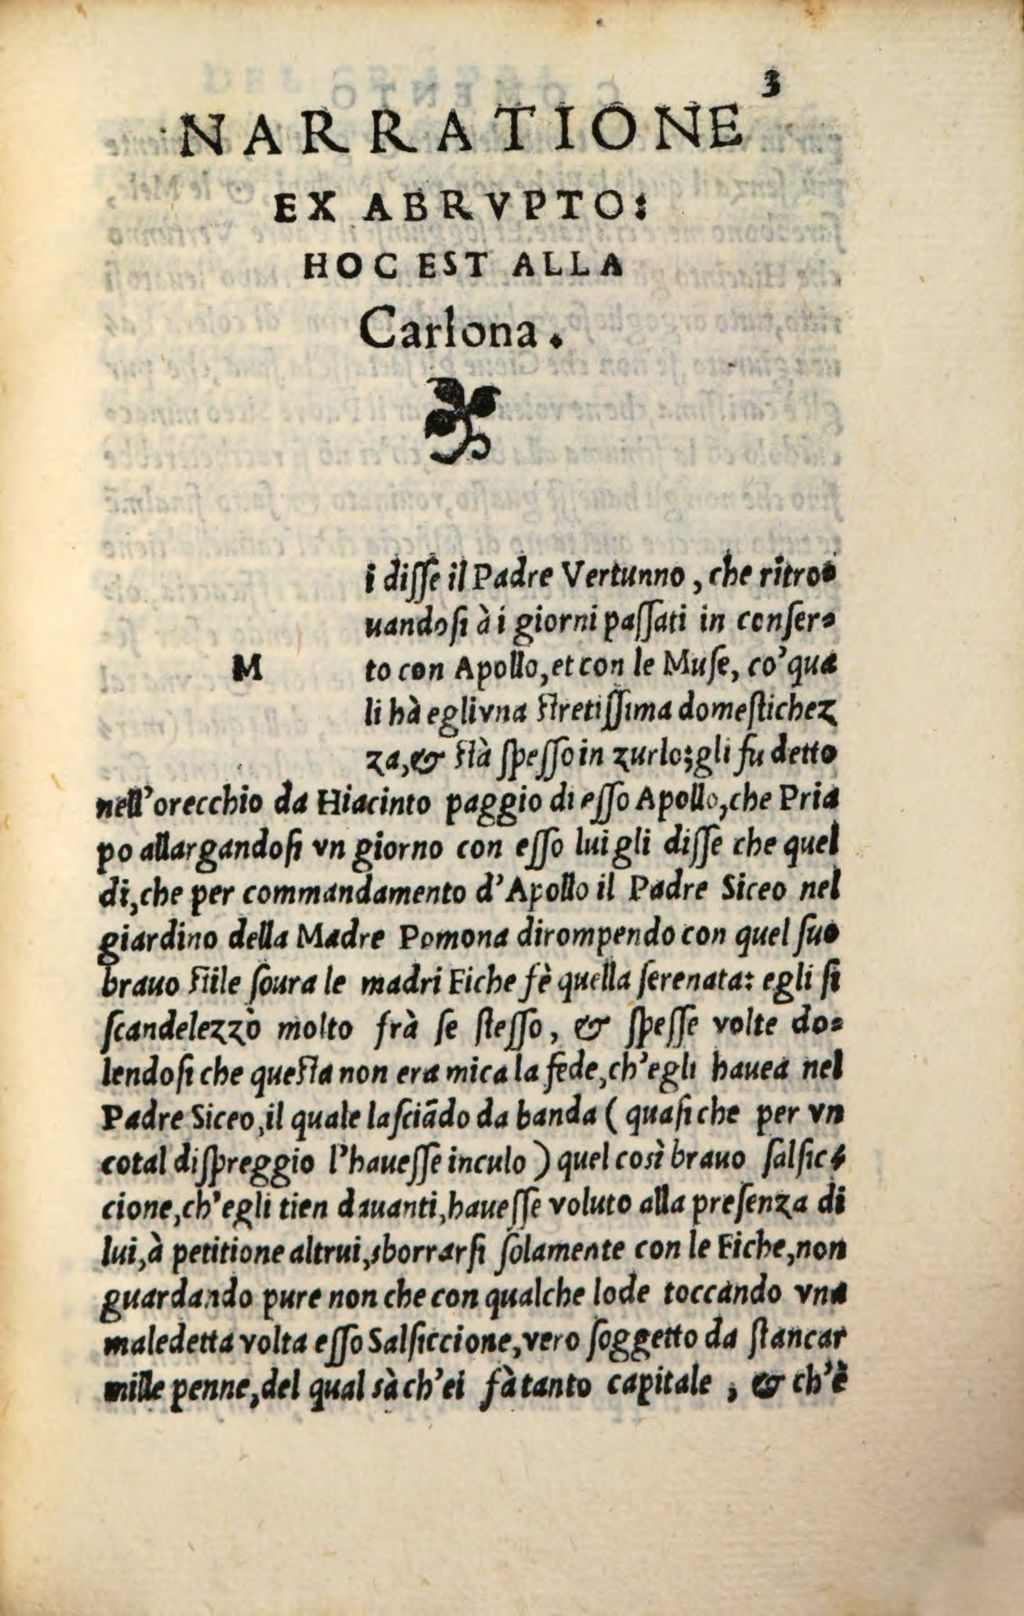 3
NARRATIONE
EX ABRVPTO:
HOC EST ALLA
Carlona.
M
i disse il Padre Vertunno, che ritro-
uandosi à i giorni passati in conser-
to con Apollo, et con le Muse, co'qua
li hà egli vna stretissima domestichez
za, & stà spesso in zurlo; gli fu detto
nell'orecchio da Hiacinto paggio di esso Apollo, che Pria
po allargandosi vn giorno con esso lui gli disse che quel
dì, che per commandamento d'Apollo il Padre Siceo nel
giardino della Madre Pomona dirompendo con quel suo
brauo stile soura le madri Fiche fè quella serenata: egli si
scandelezzò molto frà se stesso, & spesse volte do-
lendosi che questa non era mica la fede, ch'egli hauea nel
Padre Siceo, il quale lasciãdo da banda ( quasi che per vn
cotal dispreggio l'hauesse inculo ) quel così brauo salsic-
cione, ch'egli tien dauanti, hauesse voluto alla presenza di
lui, à petitione altrui, sborrarsi solamente con le Fiche, non
guardando pure non che con qualche lode toccando vna
maledetta volta esso Salsiccione, vero soggetto da stancar
mille penne, del qual sà ch'ei fà tanto capitale, & ch'è